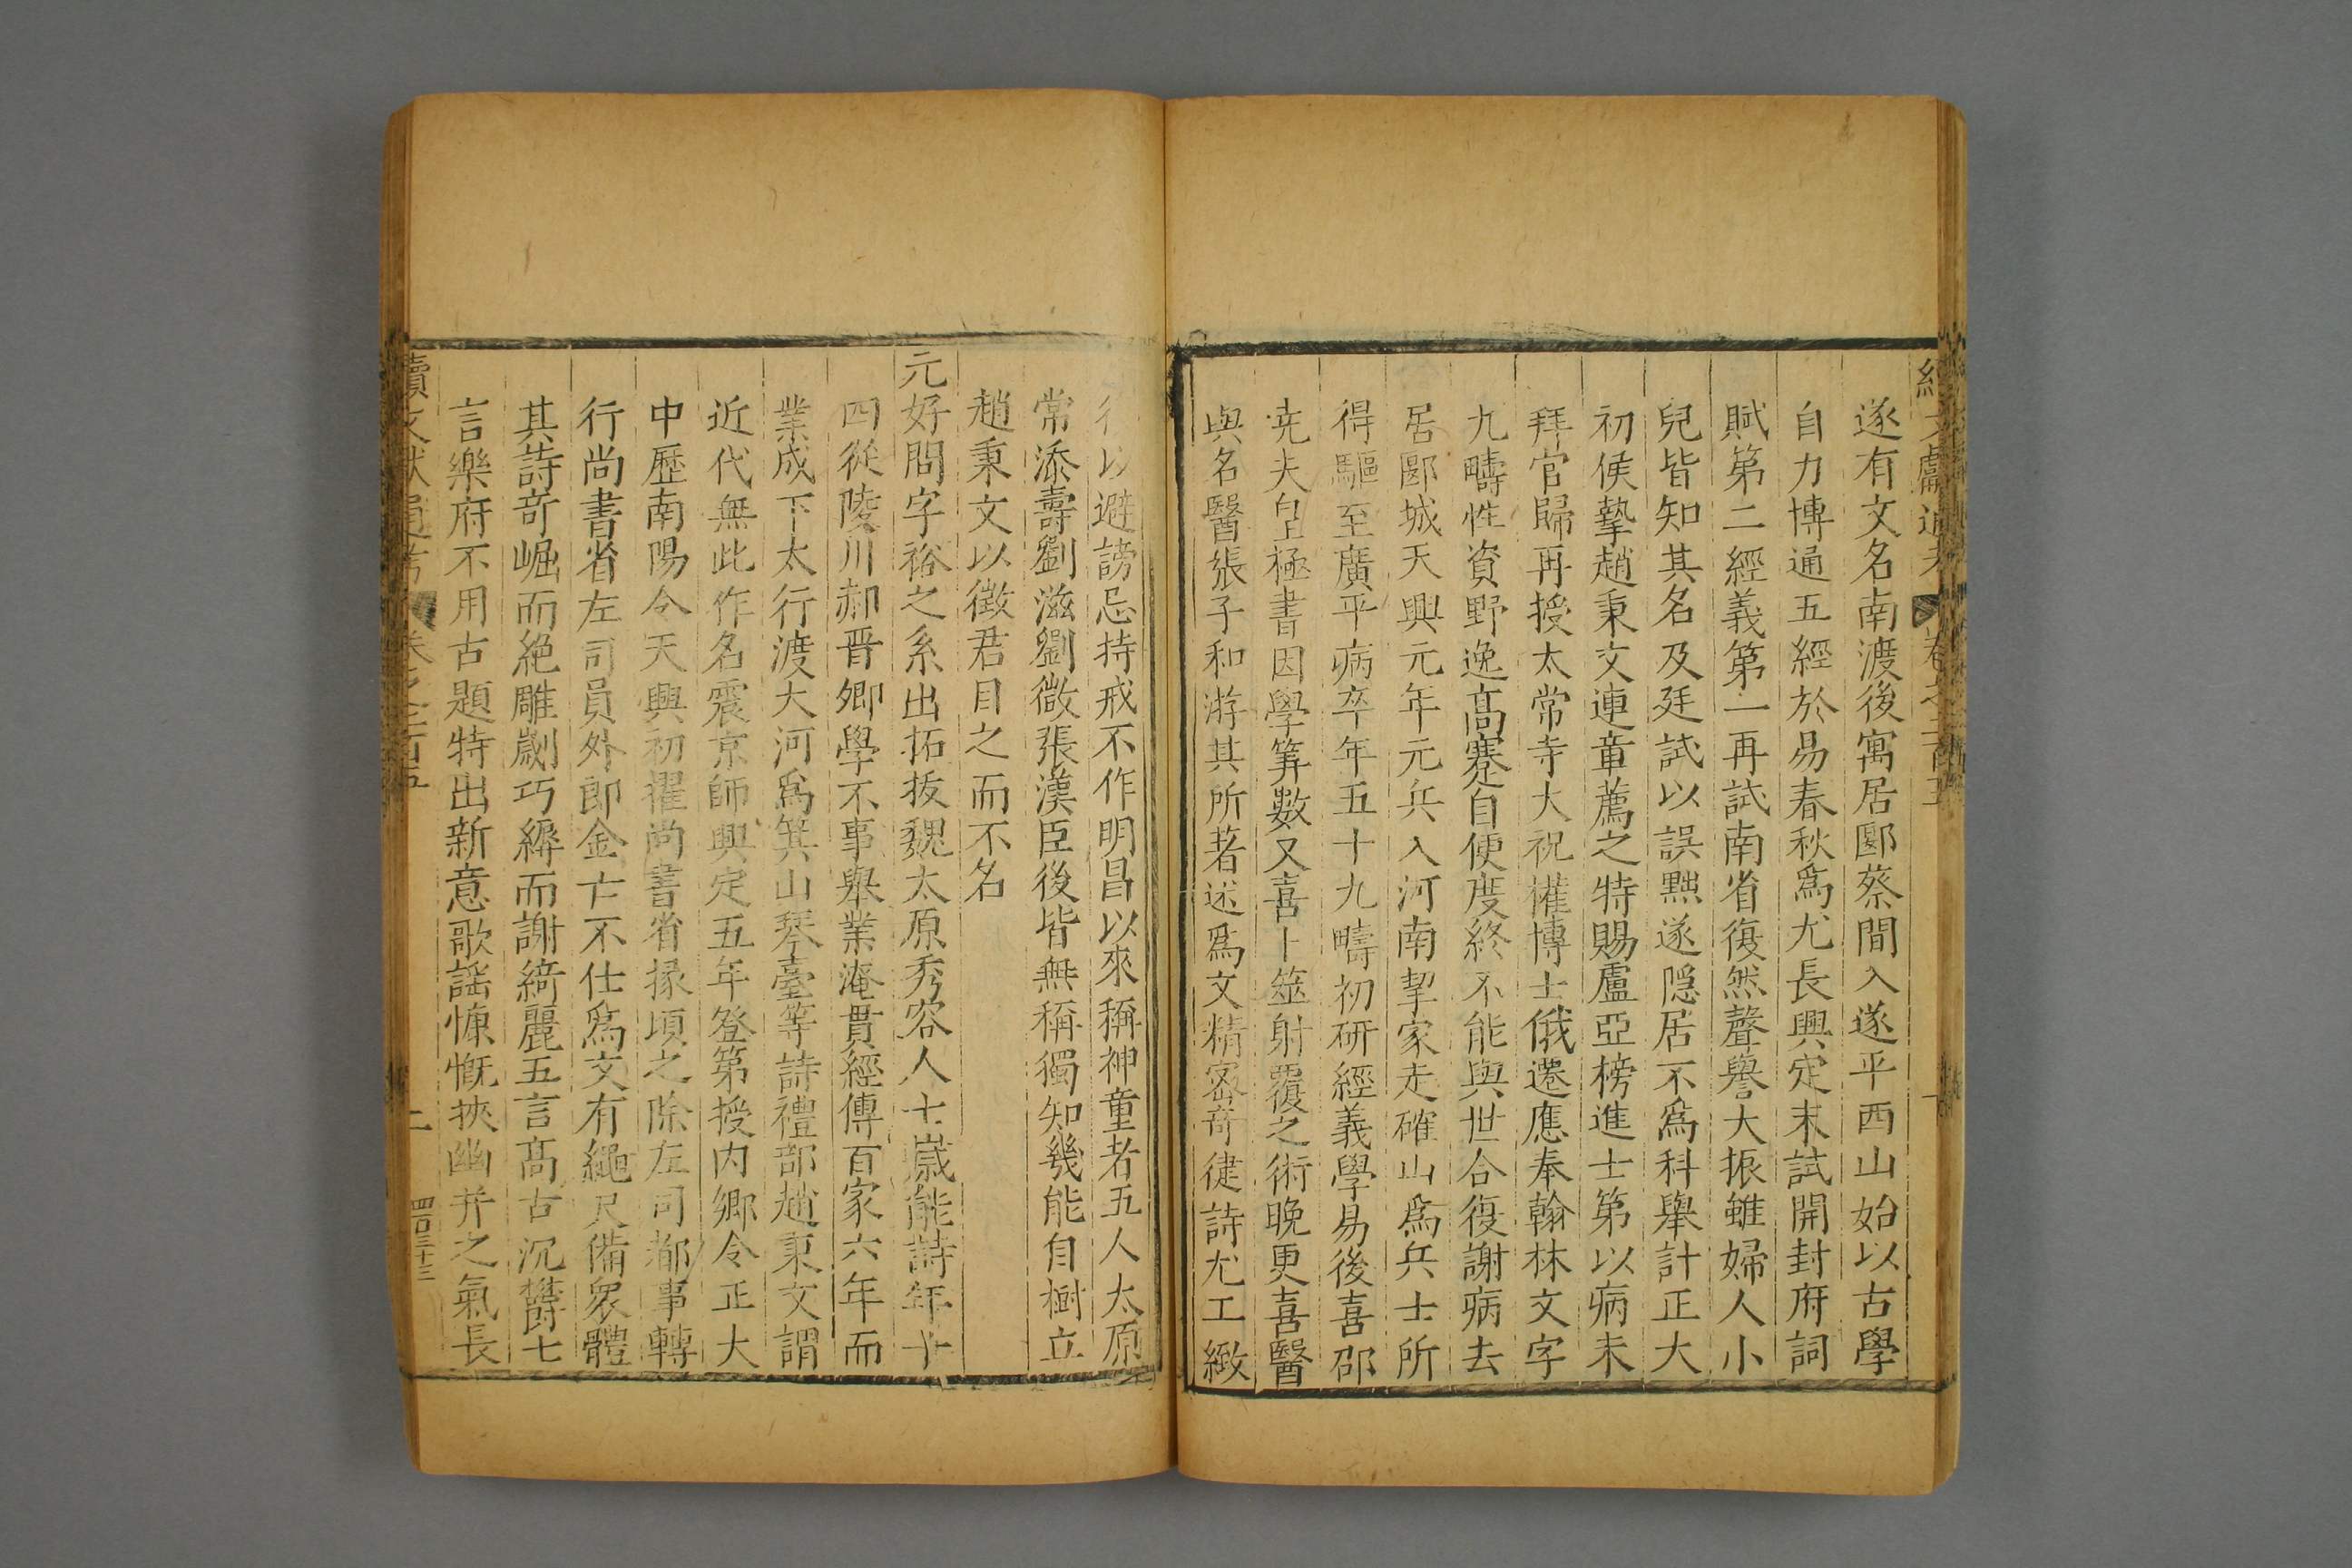 文獻通考 卷之二百五
遂有文名南渡後寓居郾蔡間入遂平西山始以古學
自力博通五經於易春秋爲尤長興定末試開封府詞
賦第二經義第一再試南省復然聲譽大振雖婦人小
兒皆知其名及廷試以誤黜遂隱居不爲科舉計正大
初侯摯趙秉文連章薦之特賜盧亞榜進士第以病未
拜官歸再授太常寺大祝權博士俄遷應奉翰林文字
九疇性資野逸髙蹇自便度終不能與世合復謝病去
居郾城天興元年元兵入河南挈家走確山爲兵士所
得驅至廣平病卒年五十九疇初硏經義學易後喜邵
尭夫皇極書因學筭數又喜卜筮射覆之術晚更喜醫
與名醫張子和游其所著述爲文精密竒健詩尤工緻
以避謗忌持戒不作明昌以來稱神童者五人太原
常添壽劉滋劉微張漢臣後皆無稱獨知幾能自樹立
趙秉文以徵君目之而不名
元好問字裕之系出拓拔魏太原秀容人七歲能詩年十
四從陵川郝晉卿學不事舉業淹貫經傳百家六年而
業成下太行渡大河爲箕山琴臺等詩禮部趙秉文謂
近代無此作名震京師興定五年登第授内鄉令正大
中歷南陽令天興初擢尚書省掾頃之除左司都事轉
行尚書省左司員外郎金亡不仕爲文有繩尺備衆體
其詩竒崛而絶雕劌巧縟而謝綺麗五言髙古沉鬱七
言樂府不用古題特出新意歌謡慷慨挾幽并之氣長
續文獻通考 卷之二百五 二 四百三十三